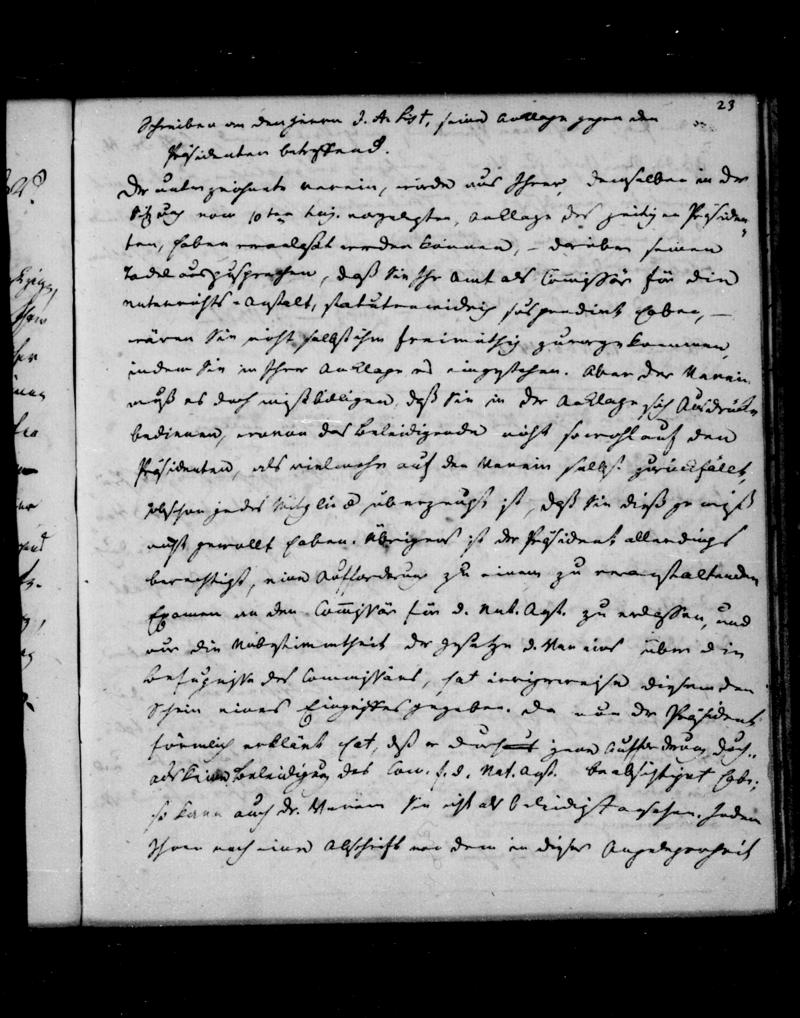 23
Schreiben an den Herrn J. A. List, seine Anklage gegen den
Präsidenten betreffend.
Der unterzeichnete Verein, würde aus Ihrer, demselben in der
Sitzung vom 10ten huj. vorgelegten, Anklage des zeitigen Präsiden-
ten, haben veranlaßt werden können, – darüber seinen
Tadel auszusprechen, daß Sie Ihr Amt als Commissär für die
Unterrichts-Anstalt, statutenwidrig suspendirt haben, –
wären Sie nicht selbst ihm freimüthig zuvorgekommen,
indem Sie in Ihrer Anklage es eingestehen. Aber der Verein
muß es doch mißbilligen, daß Sie in der Anklage sich Ausdrücke
bedienen, wovon das Beleidigende nicht sowohl auf den
Präsidenten, als vielmehr auf den Verein selbst zurückfällt,
obschon jedes Mitglied überzeugt ist, daß Sie dieß gewiß
nicht gewollt haben. Übrigens ist der Präsident allerdings
berechtigt, eine Aufforderung zu einem zu veranstaltenden
Examen an den Commissär für d. Unt. Anst. zu erlassen, und
nur die Unbestimmtheit der Gesetze d. Vereins über die
Befugnisse des Commissärs, hat irrigerweise diesem den
Schein eines Eingriffes gegeben. Da nun der Präsident
förmlich erklärt hat, daß er durch jene Aufforderung durch-
aus keine Beleidigung des Com. f. d. Unt. Anst. beabsichtigt habe;
so kann auch dr. Verein Sie nicht als beleidigt ansehen. Indem
Ihnen noch eine Abschrift von dem in dieser Angelegenheit